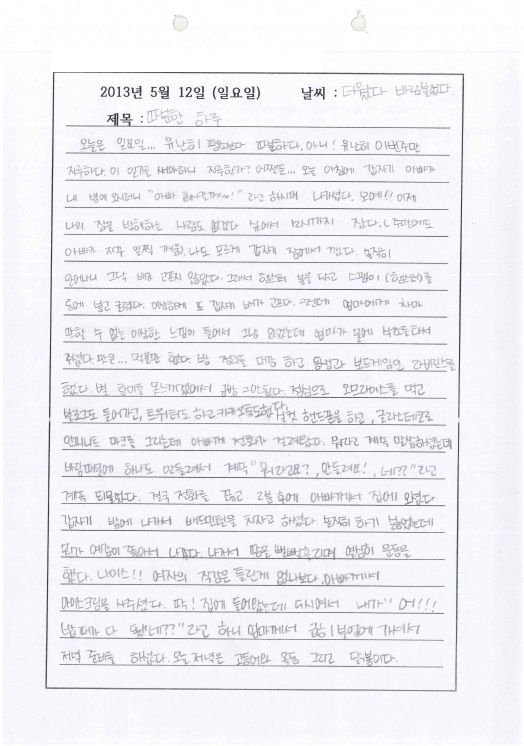 2013년 5월 12일 (일요일) 날씨 : 더웠다 바람불었다.
제목 : 따분한 하루
오늘은 일요일... 유난히 평소보다 따분하다. 아니! 유난히 이번주만
지루하다. 이 일기를 써야하니 지루한가? 어쨌든... 오늘 아침에 갑자기 아빠가
내 방에 오시더니 "아빠 회사갈께~~!" 라고 하시며 나가셨다. 오예!! 이제
나의 잠을 방해하는 사람도 없겠다 싶어서 12시까지 잤다. (주말에도
아빠가 자꾸 일찍 깨움) 나도 모르게 갑자기 잠에서 깼다. 솔직히
일어나니 그닥 배가 고프지 않았다. 그래서 햄스터 밥을 주고 (햄스터)를
손에 놓고 굴렸다. 이상하게 또 갑자기 배가 고프다. 그런데 엄마에게 차마
말할 수 없는 이상한 느낌이 들어서 그냥 있었는데 엄마가 물에 타서
주셨다. 맛은... 먹을만 했다. 방 정리를 대강 하고 동생과 보드게임인 라비린스를
했다. 별 흥미를 못느끼겠어서 금방 그만뒀다. 점심으로 오므라이스를 먹고
블로그도 들어가고, 트위터도 하고 카카오톡도 했다. 핸드폰을 하고, 글라스데코로
인피니트 마크를 그리는데 아빠께 전화가 걸려왔다. 뭐라고 계속 말씀하셨는데
바람때문에 하나도 안들려서 계속 "뭐라고요?, 안들려요!, 네??" 라고
계속 되물었다. 결국 전화를 끊고 2분 후에 아빠께서 집에 와서
갑자기 밖에 나가서 배드민턴을 치자고 하셨다. 솔직히 하기 싫었는데
뭔가 예감이 좋아서 나갔다. 나가서 땀을 뻘뻘흘리며 열심히 운동을
했다. 나이스!! 여자의 직감은 틀린게 없나보다. 아빠께서
아이스크림을 사주셨다. 딱! 집에 들어왔는데 다시여서 내가 "어!!!
밥때가 다 됐네??" 라고 하니 엄마께서 곧장 부엌에 가셔서
저녁 준비를 하셨다. 오늘 저녁은 고등어와 목동 그리고 닭불이다.